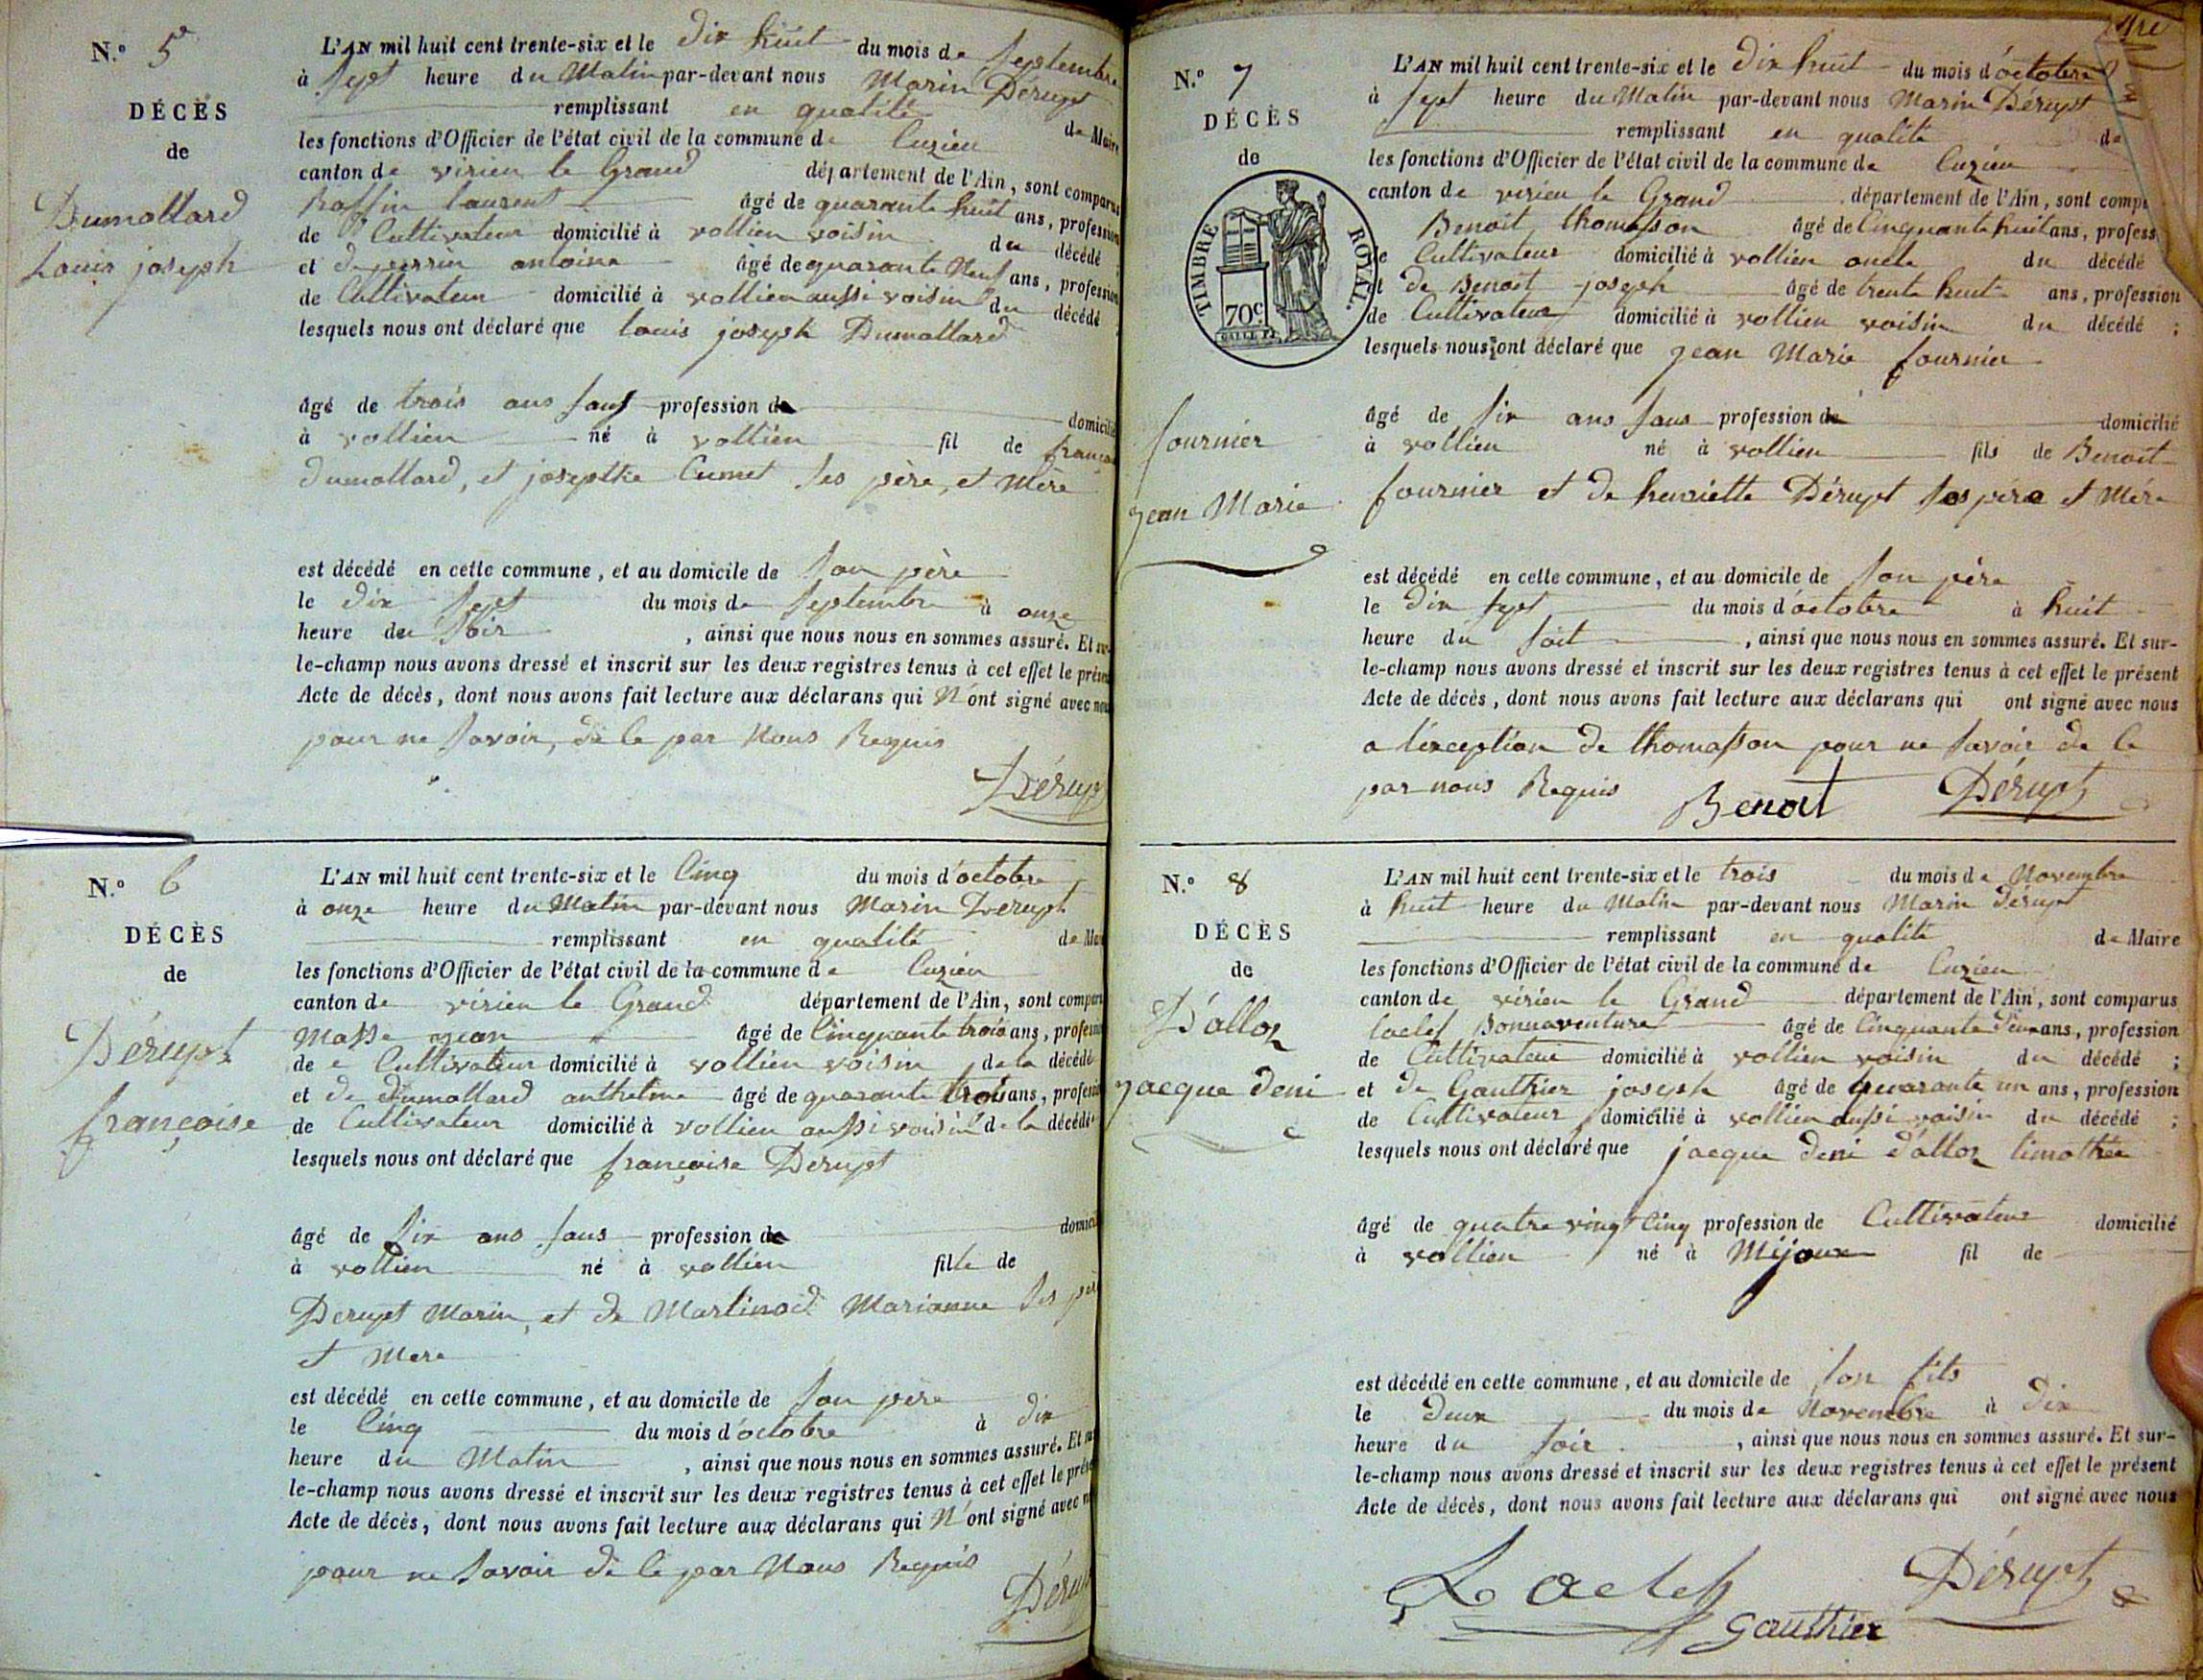 N.° 5
DÉCÈS
de
Dumollard
Louis joseph
L'AN mil huit cent trente-six et le dix huit du mois de Septembre
à Sept heure du Matin par-devant nous Marin Dérupt
remplissant en qualité de Maire
les fonctions d'Officier de l'état civil de la commune de Cuzieu
canton de virieu le Grand département de l'Ain, sont comparus
Roffin laurent âgé de quarante huit ans, profession
de Cultivateur domicilié à vollien voisin du décédé ;
et de perrin antoine âgé de quarante Neuf ans, profession
de Cultivateur domicilié à vollien aussi voisin du décédé
lesquels nous ont déclaré que louis joseph Dumollard
âgé de trois ans sans profession de domicilié
à vollien né à vollien fil de françois
Dumollard, et josepthe Cumet ses père, et Mère
est décédé en cette commune, et au domicile de Son père
le dix Sept du mois de Septembre à onze
heure du Soir , ainsi que nous nous en sommes assuré. Et sur-
le-champ nous avons dressé et inscrit sur les deux registres tenus à cet effet le présent
Acte de décès, dont nous avons fait lecture aux déclarans qui N'ont signé avec nous
pour ne Savoir, de ce par Nous Requis
Dérupt
N.° 6
DÉCÈS
de
Dérupt
françoise
L'AN mil huit cent trente-six et le Cinq du mois d'octobre
à onze heure du Matin par-devant nous Marin Derupt
remplissant en qualité de Mai
les fonctions d'Officier de l'état civil de la commune de Cuzieu
canton de virieu le Grand département de l'Ain, sont comparu
Masse jean âgé de Cinquante trois ans, profession
de Cultivateur domicilié à vollien voisin de la décédé
et de Dumollard anthelme âgé de quarante trois ans, profession
de Cultivateur domicilié à vollien aussi voisin de la décédé
lesquels nous ont déclaré que françoise Derupt
âgé de Six ans sans profession de domicil
à vollien né à vollien fille de
Derupt Marin, et de Martinod Marianne Ses pè
et Mere
est décédé en cette commune, et au domicile de Son père
le Cinq du mois d'octobre à dix
heure du Matin , ainsi que nous nous en sommes assuré. Et su
le-champ nous avons dressé et inscrit sur les deux registres tenus à cet effet le prése
Acte de décès, dont nous avons fait lecture aux déclarans qui N'ont signé avec n
pour ne Savoir de ce par Nous Requis
Déru
N.° 7
DÉCÈS
de
TIMBRE ROYAL.
70c
fournier
jean Marie
L'AN mil huit cent trente-six et le dix huit du mois d'octobre
à Sept heure du Matin par-devant nous Marin Dérupt
remplissant en qualité de
les fonctions d'Officier de l'état civil de la commune de Cuzieu
canton de virieu le Grand département de l'Ain, sont comp
Benoit thomasson âgé de Cinquante huit ans, profess
de Cultivateur domicilié à vollien oncle du décédé
et de Benoit joseph âgé de trente huit ans, profession
de Cultivateur domicilié à vollien voisin du décédé ;
lesquels nous ont déclaré que jean Marie fournier
âgé de Six ans Sans profession de domicilié
à vollien né à vollien fils de Benoit
fournier et de henriette Dérupt Ses père et Mère
est décédé en cette commune, et au domicile de Son père
le dix Sept du mois d'octobre à huit
heure du Soit , ainsi que nous nous en sommes assuré. Et sur-
le-champ nous avons dressé et inscrit sur les deux registres tenus à cet effet le présent
Acte de décès, dont nous avons fait lecture aux déclarans qui ont signé avec nous
a l'exception de thomasson pour ne Savoir de ce
par nous Requis
Benoit Dérupt
N.° 8
DÉCÈS
de
D'alloz
jacque deni
L'AN mil huit cent trente-six et le trois du mois de Novembre
à huit heure du Matin par-devant nous Marin Dérupt
remplissant en qualité de Maire
les fonctions d'Officier de l'état civil de la commune de Cuzieu
canton de virieu le Grand département de l'Ain, sont comparus
Bonnaventure âgé de Cinquante deux ans, profession
de Cultivateur domicilié à vollien voisin du décédé ;
et de Gauthier joseph âgé de quarante un ans, profession
de Cultivateur domicilié à vollien aussi voisin du décédé ;
lesquels nous ont déclaré que jacque deni d'alloz timothée
âgé de quatre vingt Cinq profession de Cultivateur domicilié
à vollien né à Mijoux fil de
est décédé en cette commune, et au domicile de Son fils
le deux du mois de Novembre à dix
heure du Soir , ainsi que nous nous en sommes assuré. Et sur-
le-champ nous avons dressé et inscrit sur les deux registres tenus à cet effet le présent
Acte de décès, dont nous avons fait lecture aux déclarans qui ont signé avec nous
Dérupt
Gauthier